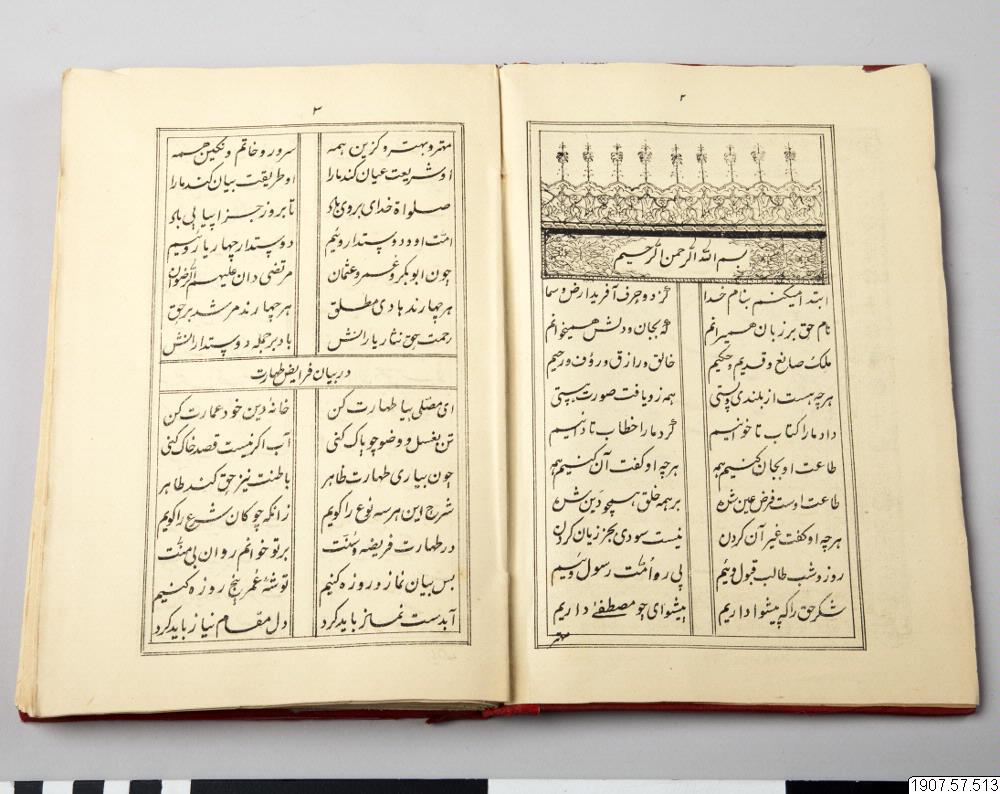 ٢
بسم الله الرحمن الرحیم
ابتدا میکنم بنام خدا کز دو حرف آفرید ارض و سما
نام حق بر زبان همیرانم که بجان و دلش همیخوانم
ملک صانع و قدیم و حکیم خالق و رازق و رؤف و رحیم
هرچه هست از بلندی و پستی همه زو یافت صورت هستی
داد ما را کتاب تا خوانیم کرد ما را خطاب تا دانیم
طاعت او بجان کنیم همه هرچه او کفت آن کنیم همه
طاعت اوست فرض عین شده بر همه خلق همچو دین شده
هرچه او کفت غیر آن کردن نیست سودی بجز زیان کردن
روز و شب طالب قبول وئیم پی رو امت رسول وئیم
شکر حق را که پیشوا داریم پیشوای چو مصطفی داریم
مهتر
٣
مهتر و بهتر و کزین همه سرور و خاتم و نکین همه
او شریعت عیان کند ما را او طریقت بیان کند ما را
صلواة خدای بروی باد تا بروز جزا پیاپی باد
امت او و دوستدار وئیم دوستدار چهار یار وئیم
چون ابوبکر و عمر و عثمان مرتضی دان علیهم الرضوان
هر چهارند هادی مطلق هر چهارند مرشد بر حق
رحمت حق نثار یارانش باد بر جمله دوستدارانش
در بیان فرایض طهارت
ای مصلی بیا طهارت کن خانه دین خود عمارت کن
تن بغسل و وضو چو پاک کنی آب اکر نیست قصد خاک کنی
چون بیاری طهارت ظاهر باطنت نیز حق کند طاهر
شرح این هر سه نوع را کویم زانکه چوکان شرع را کویم
در طهارت فریضه و سنت بر تو خوانم روان بی منت
پس بیان نماز و روزه کنیم توشه عمر پنج روزه کنیم
آبدست نماز باید کرد دل مقام نیاز باید کرد
1907.57.513